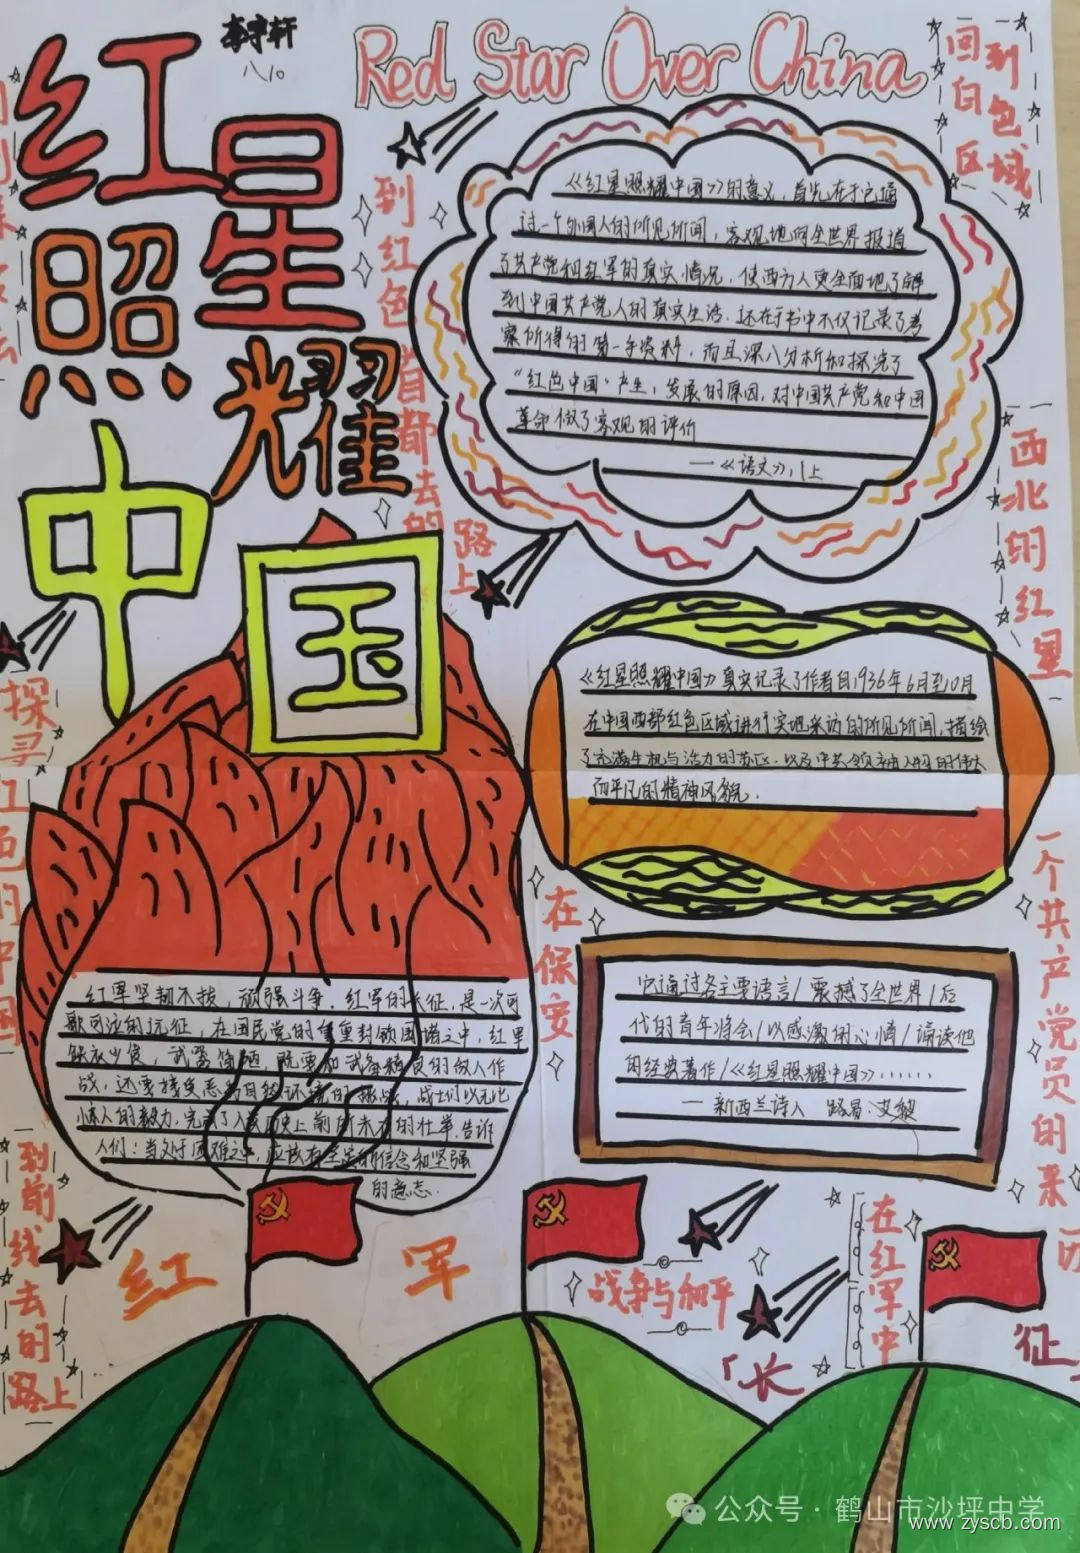 李宇轩
八10
Red Star Over China
红星
照耀
中国
回到
白色
区域
到红色首都去的
路上
西北的红星
《红星照耀中国》的意义，首先在于它通
过一个外国人的所见所闻，客观地向全世界报道
了共产党和红军的真实情况，使西方人更全面地了解
到中国共产党人的真实生活。还在于书中不仅记录了考
察所得的第一手资料，而且深入分析和探究了
“红色中国”产生、发展的原因，对中国共产党和中国
革命做了客观的评价
—《语文》八上
《红星照耀中国》真实记录了作者自1936年6月至10月
在中国西部红色区域进行实地采访的所见所闻，描绘
了充满生机与活力的苏区，以及中共领袖人物的伟大
而平凡的精神风貌.
探寻红色的中国
在保安
一个共产党员的来历
红军坚韧不拔，顽强斗争。红军的长征，是一次可
歌可泣的远征，在国民党的重重封锁围堵之中，红军
缺衣少食，武器简陋，既要和武备精良的敌人作
战，还要接受恶劣自然环境的挑战，战士们以无比
惊人的毅力，完成了人类历史上前所未有的壮举。告诉
人们：当处于困难之中，应该有坚定的信念和坚强
的意志.
它通过各主要语言/震撼了全世界/后
代的青年将会/以感激的心情/诵读他
的经典著作/《红星照耀中国》……
—新西兰诗人 路易·艾黎
到前线去的
路上
红军
战争与和平
在红军中
「长征」
公众号·鹤山市沙坪中学
www.zyscb.com